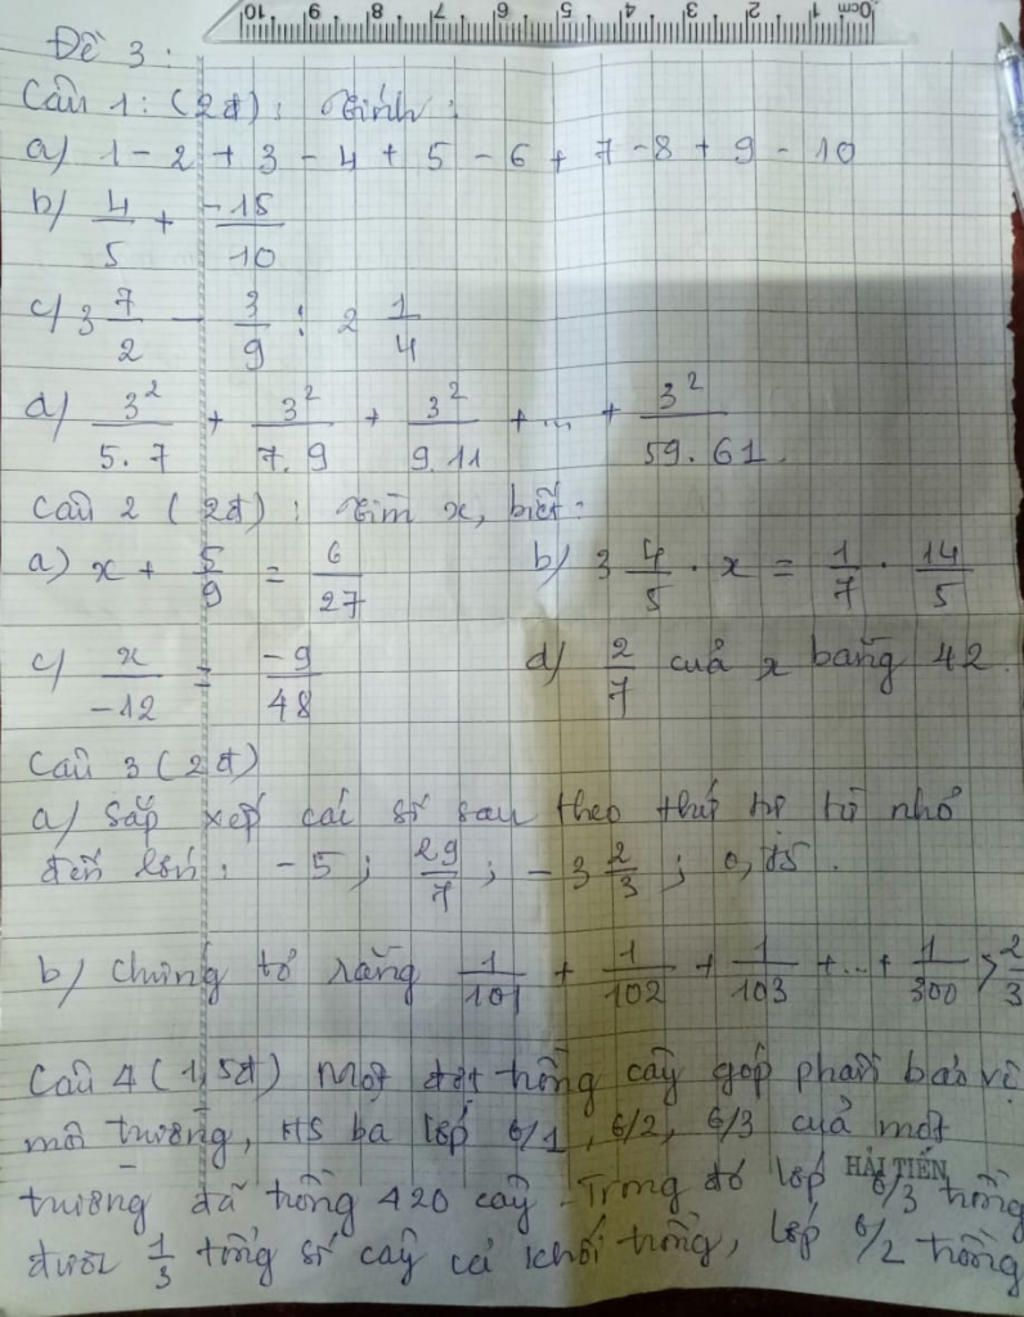 10 9 8 7 6 5 4 3 2 1 0cm
Đề 3 :
Câu 1 : (2đ) : Tính :
a) 1 - 2 + 3 - 4 + 5 - 6 + 7 - 8 + 9 - 10
b) 4/5 + -15/10
c) 3 7/2 - 3/9 : 2 1/4
d) 3²/5.7 + 3²/7.9 + 3²/9.11 + ... + 3²/59.61.
Câu 2 (2đ) : Tìm x, biết :
a) x + 5/9 = 6/27 b) 3 4/5 . x = 1/7 . 14/5
c) x/-12 = -9/48 d) 2/7 của x bằng 42.
Câu 3 (2đ)
a) Sắp xếp các số sau theo thứ tự từ nhỏ
đến lớn : -5 ; 29/7 ; -3 2/3 ; 0,5 .
b) Chứng tỏ rằng 1/101 + 1/102 + 1/103 + ... + 1/300 > 2/3
Câu 4 (1,5đ) Một đợt trồng cây góp phần bảo vệ
môi trường, HS ba lớp 6/1, 6/2, 6/3 của một
HẢI TIẾN
trường đã trồng 420 cây. Trong đó lớp 6/3 trồng
được 1/3 tổng số cây cả khối trồng, lớp 6/2 trồng